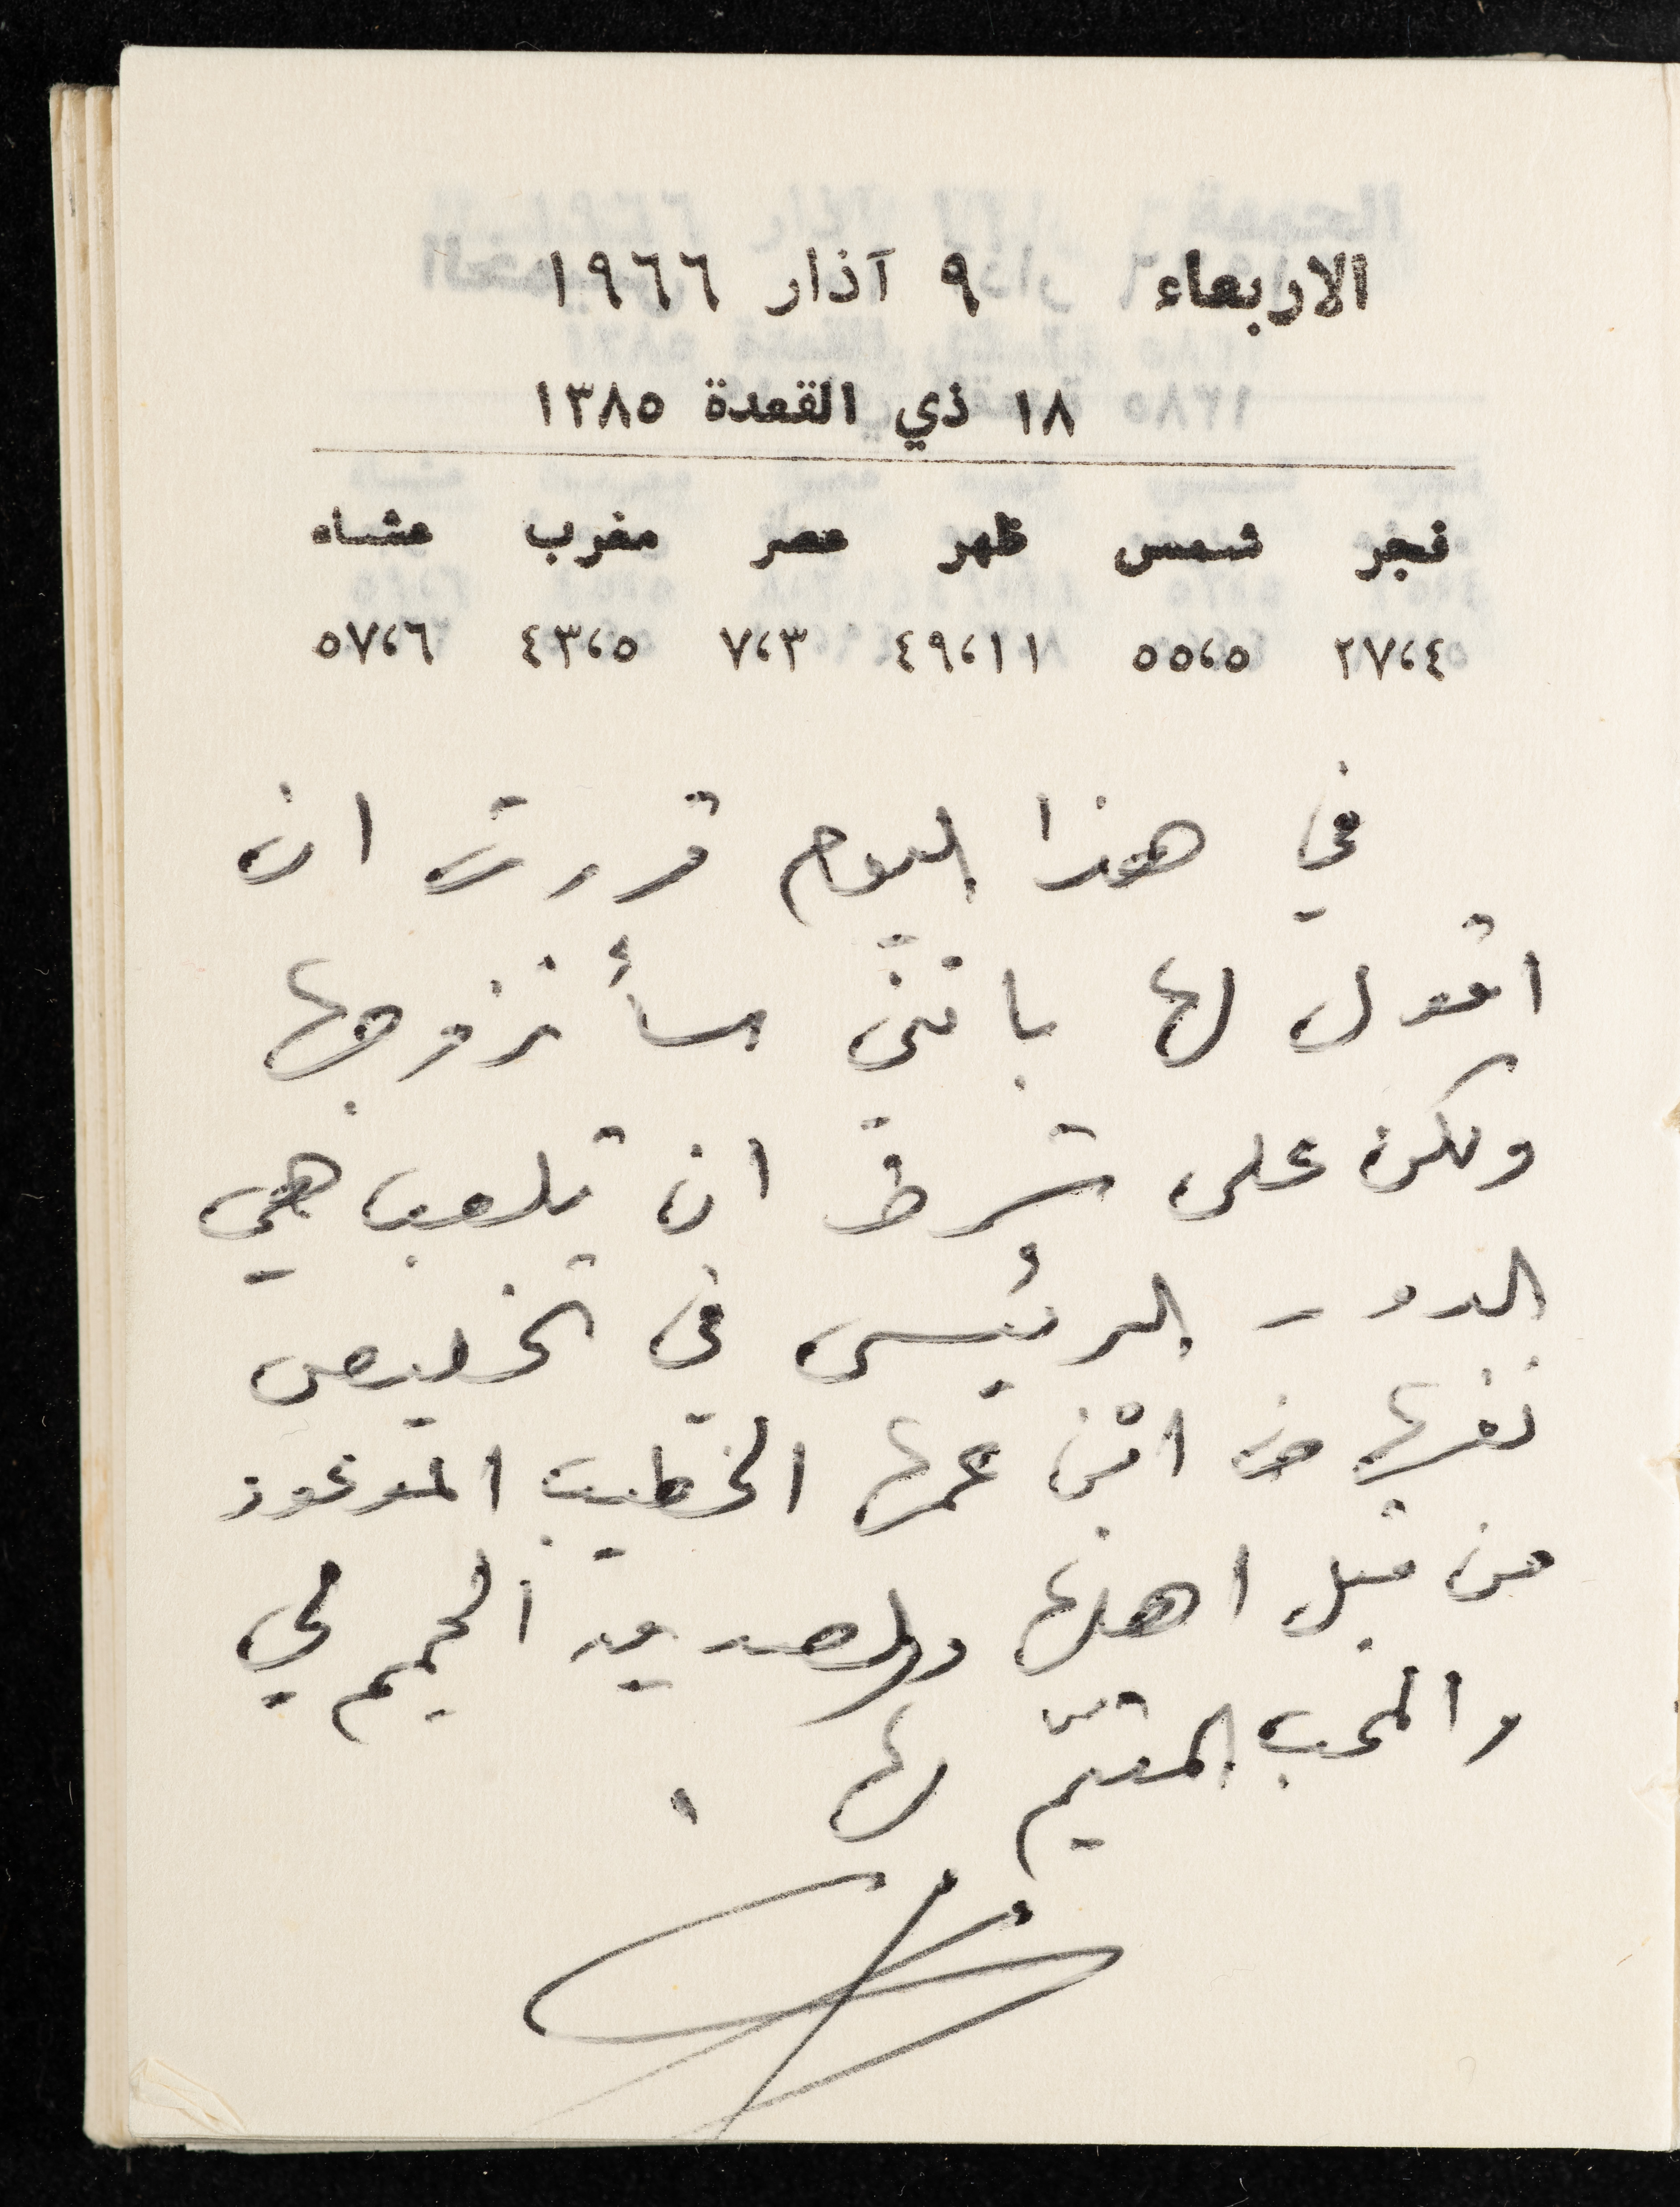 الاربعاء ٩ آذار ١٩٦٦
١٨ ذي القعدة ١٣٨٥
فجر شمس ظهر عصر مغرب عشاء
٢٧،٤ ٥٥،٥ ٤٩،١١ ٧،٣ ٤٣،٥ ٥٧،٦
في هذا اليوم قررت ان
اقول لها بانني سأتزوجها
ولكن على شرط ان تلعب هي
الدور الرئيسي في تخليص
نفسها من ابن عمها الخطيب
من قبل اهلها والصديق الحميم لي
والمحب المتيّم لها .